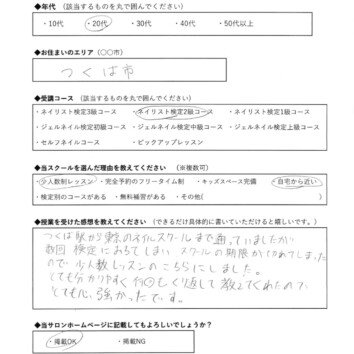 ◆年代　（該当するものを丸で囲んでください）
・10代　・20代　・30代　・40代　・50代以上
◆お住まいのエリア（○○市）
つくば市
◆受講コース　（該当するものを丸で囲んでください）
・ネイリスト検定3級コース　・ネイリスト検定2級コース　・ネイリスト検定1級コース
・ジェルネイル検定初級コース　・ジェルネイル検定中級コース　・ジェルネイル検定上級コース
・セルフネイルコース　・ピックアップレッスン
◆当スクールを選んだ理由を教えてください　（※複数可）
・少人数制レッスン　・完全予約のフリータイム制　・キッズスペース完備　・自宅から近い
・検定別のコースがある　・無料補習がある　・その他(　)
◆授業を受けた感想を教えてください　（できるだけ具体的に書いていただけると嬉しいです。）
つくば駅から東京のネイルスクールまで通っていましたが
数回 検定におちてしまい スクールの期限が切れてしまった
ので 少人数レッスンのこちらにしました。
とても分かりやすく 何回もくり返して教えてくれたので、
とても心強かったです。
◆当サロンホームページに記載してもよろしいでしょうか？
・掲載OK　・掲載NG